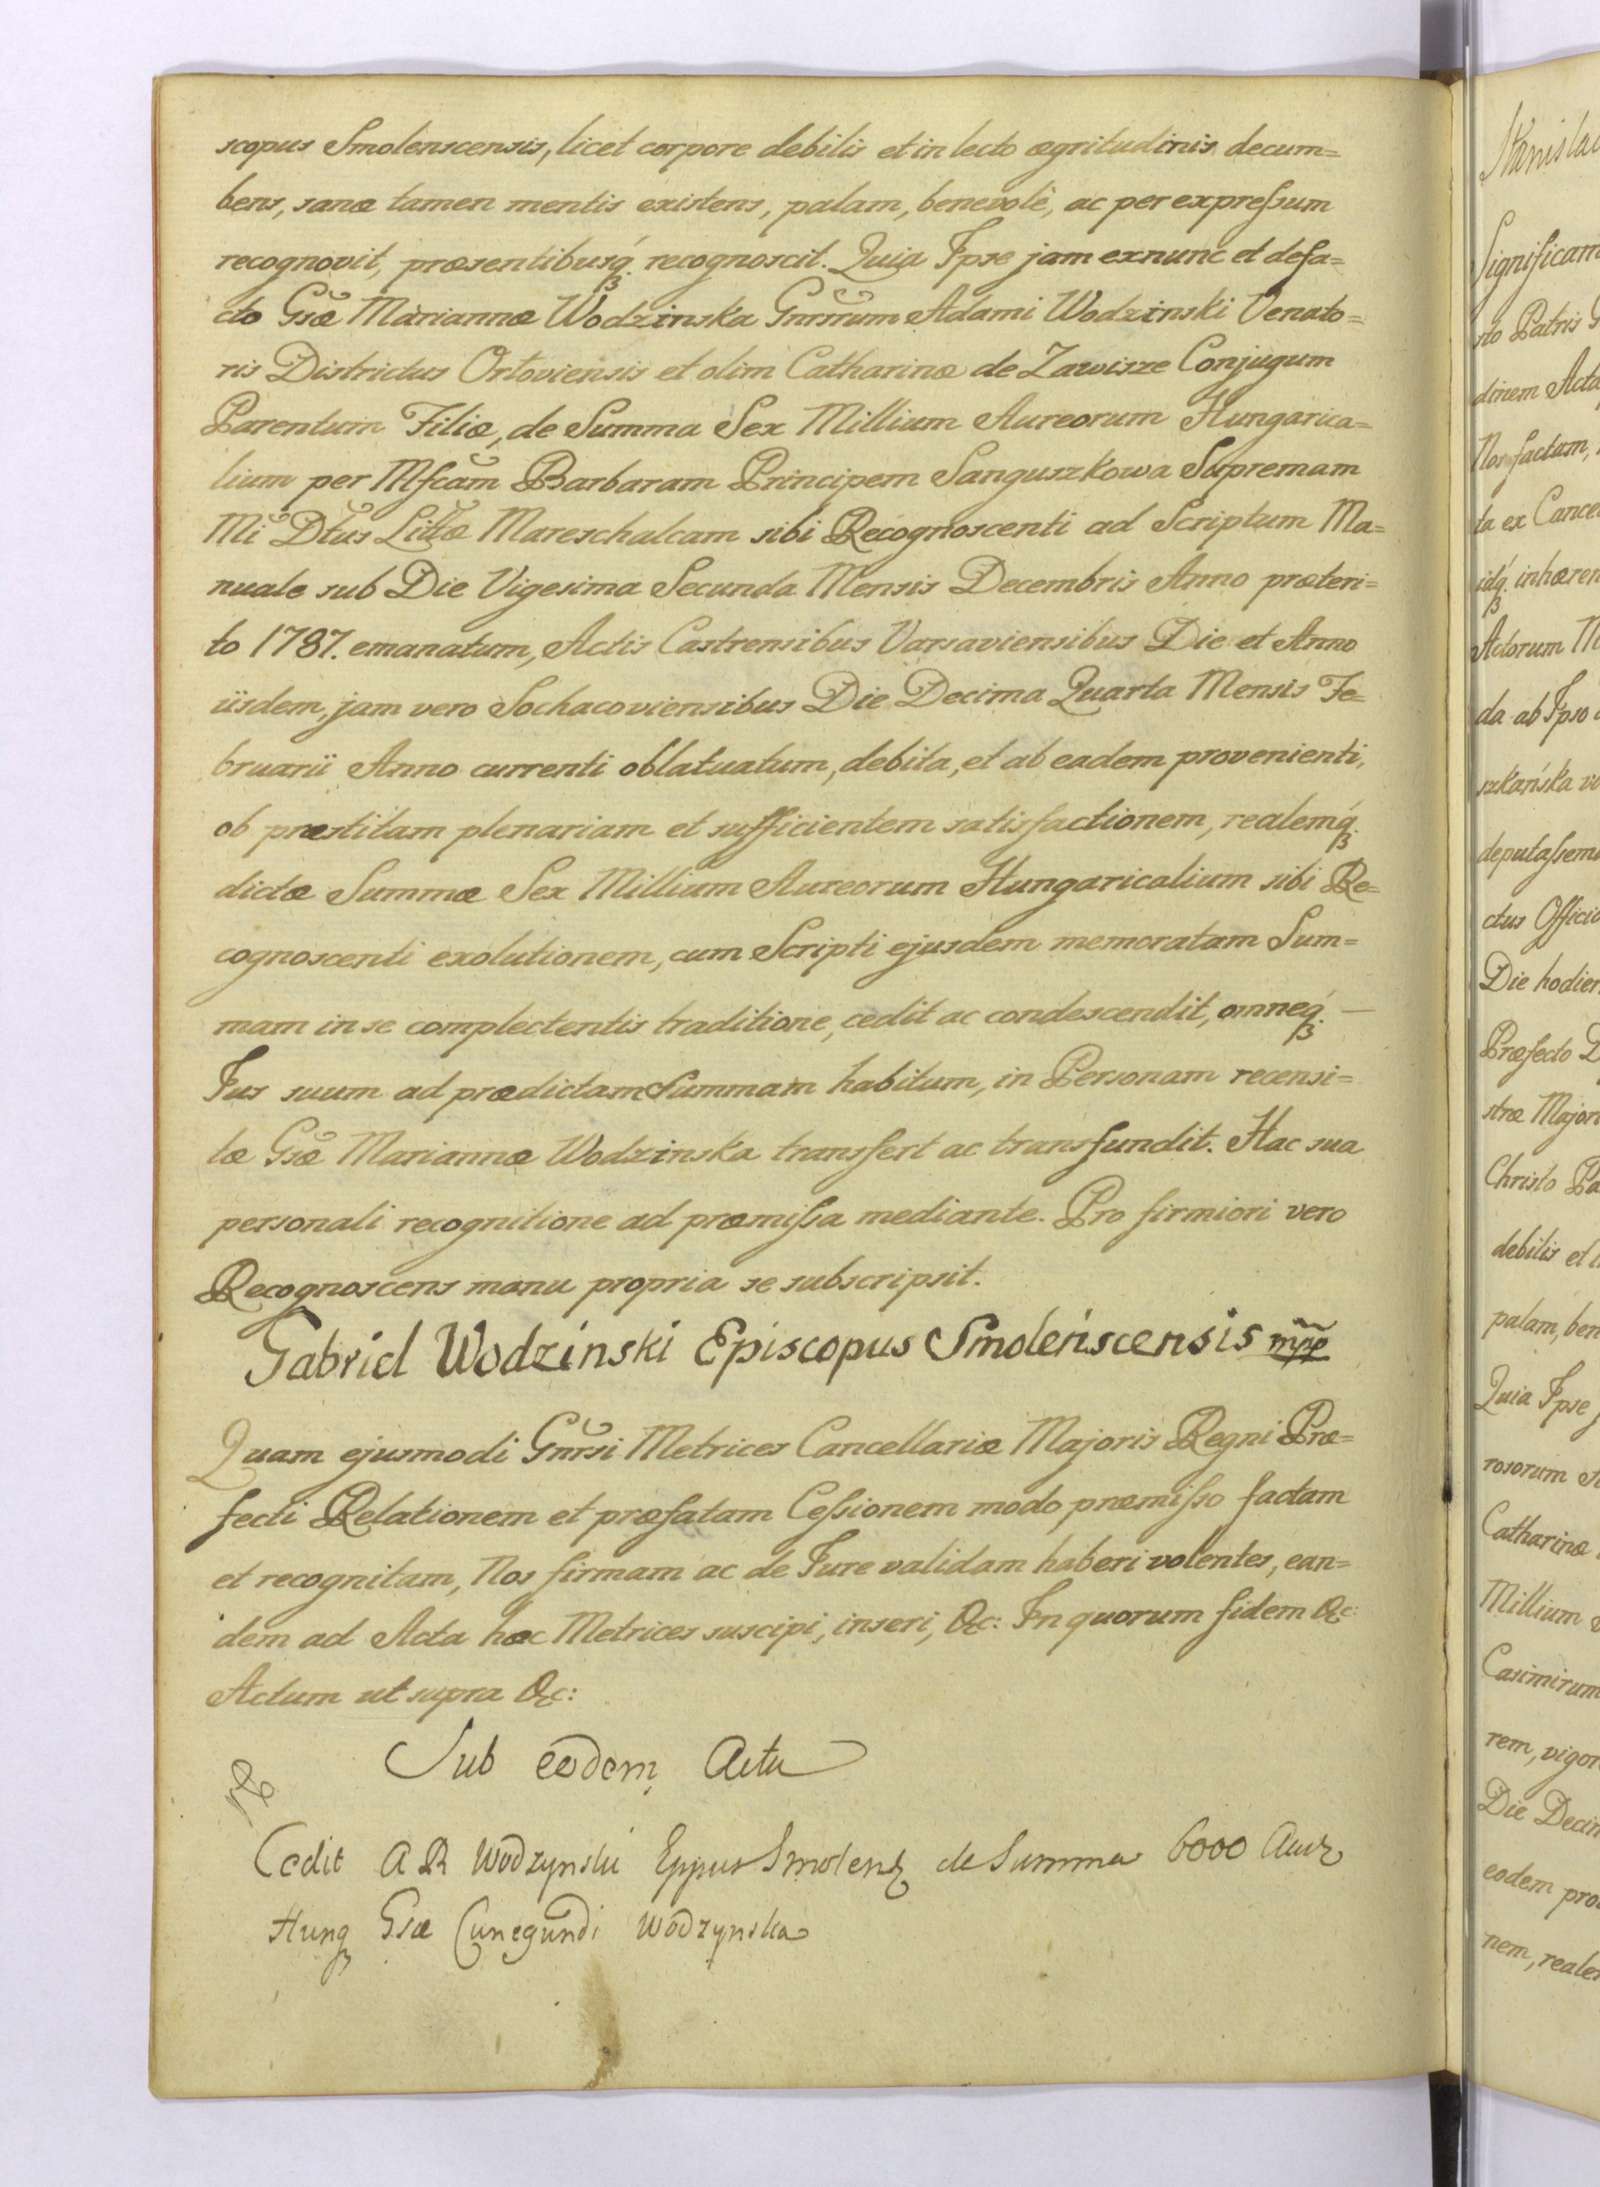 scopus Smolenscensis, licet corpore debilis et in lecto ægritudinis decum=
bens, sanæ tamen mentis existens, palam, benevolè, ac per expressum
recognovit, præsentibusq́ recognoscit. Quia Ipse jam ex nunc et defa=
cto Gsæ Mariannæ Wodzinska Gnrsrum Adami Wodzinski Venato=
ris Districtus Orłoviensis et olim Catharinæ de Zawisze Conjugum
Parentum Filiæ, de Summa Sex Millium Aureorum Hungarica=
lium per Mfcam Barbaram Principem Sanguszkowa Supremam
Mi Dtus Littæ Mareschalcam sibi Recognoscenti ad Scriptum Ma=
nuale sub Die Vigesima Secunda Mensis Decembris Anno præteri=
to 1787. emanatum, Actis Castrensibus Varsaviensibus Die et Anno
iisdem, jam vero Sochacoviensibus Die Decima Quarta Mensis Fe=
bruarii Anno currenti oblatuatum, debita, et ab eadem provenienti,
ob præstitam plenariam et sufficientem satisfactionem, realemq́
dictæ Summæ Sex Millium Aureorum Hungaricalium sibi Re=
cognoscenti exolutionem, cum Scripti ejusdem memoratam Sum=
mam in se complectentis traditione, cedit ac condescendit, omneq́ —
Jus suum ad prædictam Summam habitum, in Personam recensi=
tæ Gsæ Mariannæ Wodzinska transfert ac transfundit. Hac sua
personali recognitione ad præmissa mediante. Pro firmiori vero
Recognoscens manu propria se subscripsit.
Gabriel Wodzinski Episcopus Smoleńscensis mpp
Quam ejusmodi Gnrsi Metrices Cancellariæ Majoris Regni Præ=
fecti Relationem et præfatam Cessionem modo præmisso factam
et recognitam, Nos firmam ac de Jure validam haberi volentes, ean=
dem ad Acta hæc Metrices suscipi, inseri, &c: In quorum fidem &c:
Actum ut supra &c:
Sub eodem Actu
Cedit A R Wodzynski Eppus Smolen de Summa 6000 Aur
Hung Gsæ Cunegundi Wodzynska
Stanislau
Significam
sto Patris G
dinem Acta
Nos factam,
ta ex Cance
idq́ inhæren
Actorum M
da ab Ipso
szkańska vo
deputassem
ctus Officio
Die hodier
Præfecto D
stræ Majori
Christo Pa
debilis et i
palam, ben
Quia Ipse j
rosorum
Catharinæ
Millium
Casimirum
rem, vigor
Die Decim
eodem pro
nem, reale